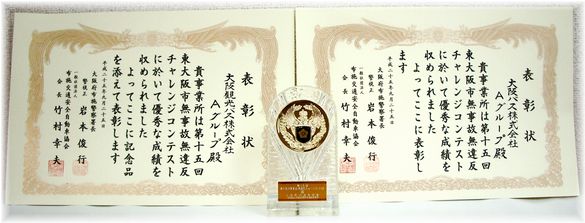 表彰状
大阪バス株式会社
Aグループ殿
貴事業所は第十五回
東大阪市無事故無違反
チャレンジコンテスト
に於いて優秀な成績を
収められました
よってここに表彰し
ます
平成二十五年九月二十五日
大阪府布施警察署長
警視正 岩本俊行
一般社団法人
布施交通安全自動車協会
会長 竹村幸夫
表彰状
大阪観光バス株式会社
Aグループ殿
貴事業所は第十五回
東大阪市無事故無違反
チャレンジコンテスト
に於いて優秀な成績を
収められました
よってここに記念品
を添えて表彰します
平成二十五年九月二十五日
大阪府布施警察署長
警視正 岩本俊行
一般社団法人
布施交通安全自動車協会
会長 竹村幸夫